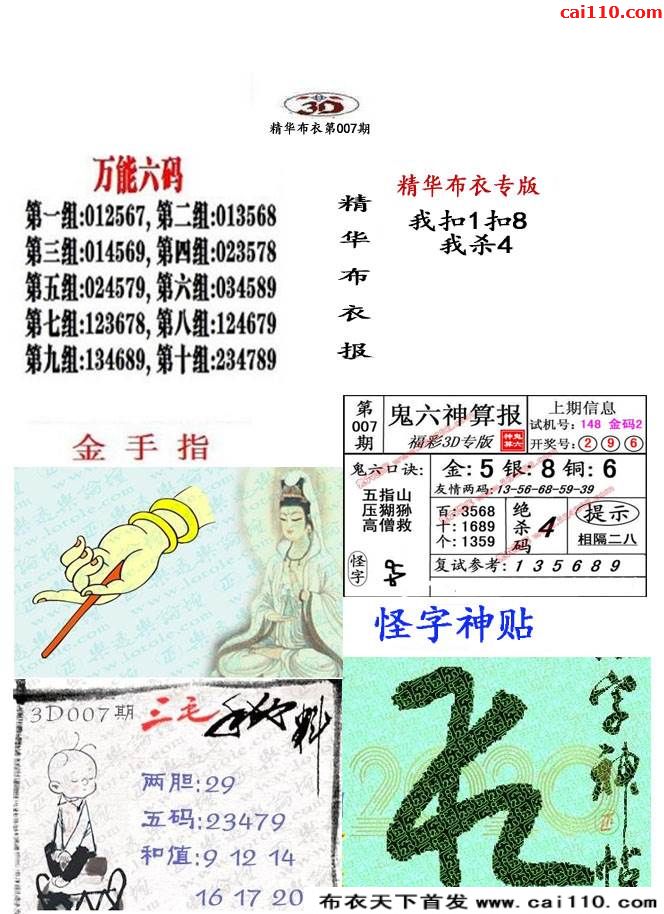 cai110.com
3D
精华布衣第007期
万能六码
第一组:012567, 第二组:013568
第三组:014569, 第四组:023578
第五组:024579, 第六组:034589
第七组:123678, 第八组:124679
第九组:134689, 第十组:234789
精华布衣报
精华布衣专版
我扣1扣8
我杀4
金手指
第007期
鬼六神算报
福彩3D专版
上期信息
试机号:148 金码2
开奖号:②⑨⑥
鬼六口诀:
五指山
压猢狲
高僧救
怪字
金:5 银:8 铜:6
友情两码:13-56-68-59-39
百:3568
十:1689
个:1359
绝杀码 4
提示
相隔二八
复试参考:135689
怪字神贴
字神帖
2020
3D007期
三毛
两胆:29
五码:23479
和值:9 12 14
16 17 20
布衣天下首发 www.cai110.com